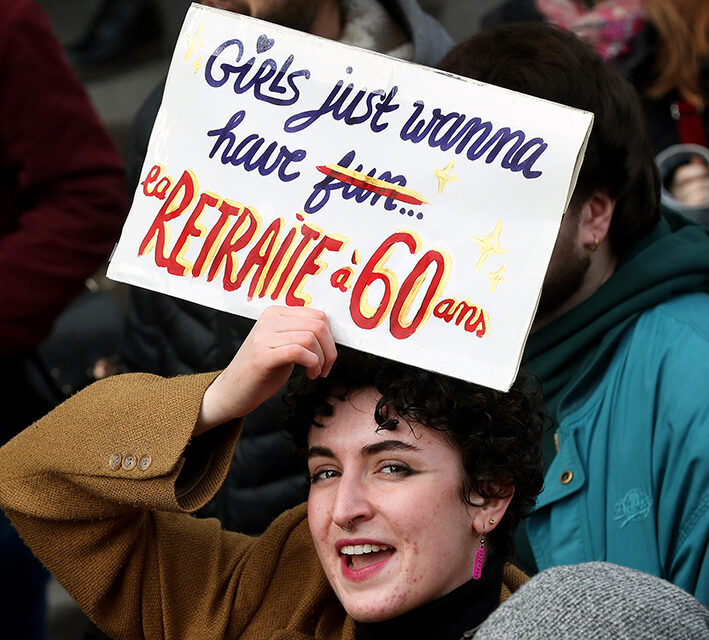 GiRLS just wanna
have fun...
la RETRAiTE à 60 ans